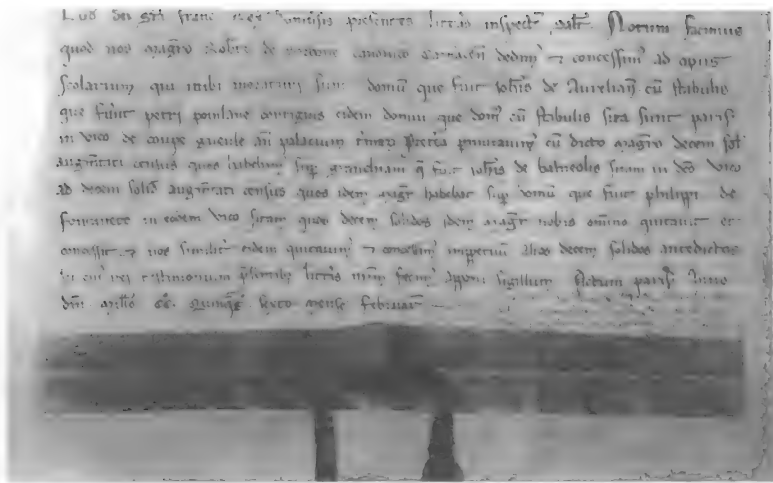 Lud dei gra franc rex Univsis presentes litteras inspect salt. Notum facimus
quod nos magro Robto de sorbone canonico Cameracen dedim ⁊ concessim ad opus
Scolarium qui inibi moraturi sunt domu que fuit Johis de Aurelian cu stabulis
que fuit petri pointlane contiguis eidem domui que dom cu stabulis sita sunt paris
in vico de coupe gueule an palacium Preterea pmutavim cu dicto magro decem sol
augmtati census quos habebam sup grancham q fuit Johis de balneolis sitam in deo vico
ad decem solid augmtati census quos idem magr habebat sup domu que fuit philippi de
fontanete in eodem vico sitam quos decem solidos idem magr nobis omino quitavit et
concessit ⁊ nos similit eidem quitavim ⁊ concessim imppetuu alios decem solidos antedictos
In cui rei testimonium psentib litteris nrm fecim apponi sigillum Actum paris Anno
dni millo cc Quinqg sexto mense februar